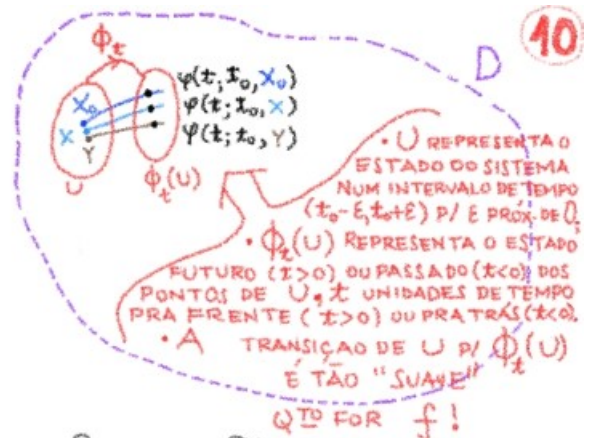 10
D
ϕ_t
φ(t; t₀, X₀)
φ(t; t₀, X)
φ(t; t₀, Y)
X₀
X
Y
U
ϕ_t(U)
• U REPRESENTA O
ESTADO DO SISTEMA
NUM INTERVALO DE TEMPO
(t₀-ε, t₀+ε) P/ ε PRÓX. DE 0;
• ϕ_t(U) REPRESENTA O ESTADO
FUTURO (t>0) OU PASSADO (t<0) DOS
PONTOS DE U, t UNIDADES DE TEMPO
PRA FRENTE (t>0) OU PRA TRÁS (t<0).
• A TRANSIÇÃO DE U P/ ϕ_t(U)
É TÃO "SUAVE"
QTO FOR f!